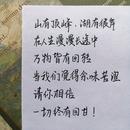 山有顶峰，湖有彼岸
在人生漫漫长途中
万物皆有回转
当我们觉得余味苦涩
请你相信
一切终有回甘！